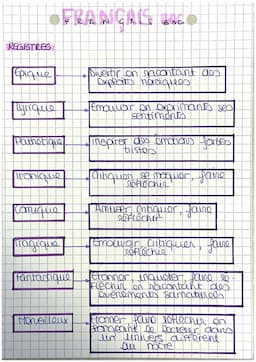 FRANÇAIS BAC
FRANÇAIS BAC
REGISTRES:
Épique
Divertir en racontant des
exploits héroïques
Lyrique
Émouvoir en exprimants ses
sentiments
Pathétique
Inspirer des émotions fortes
tristes
Ironique
Critiquer, se moquer, faire
réfléchir
Comique
Amuser, critiquer, faire
réfléchir
Tragique
Émouvoir, critiquer, faire
réfléchir
Fantastique
Étonner, inquiéter, faire ré-
fléchir en racontant des
événements surnaturels
Merveilleux
Étonner, faire réfléchir en
le lecteur dans
un univers différent
du nôtre